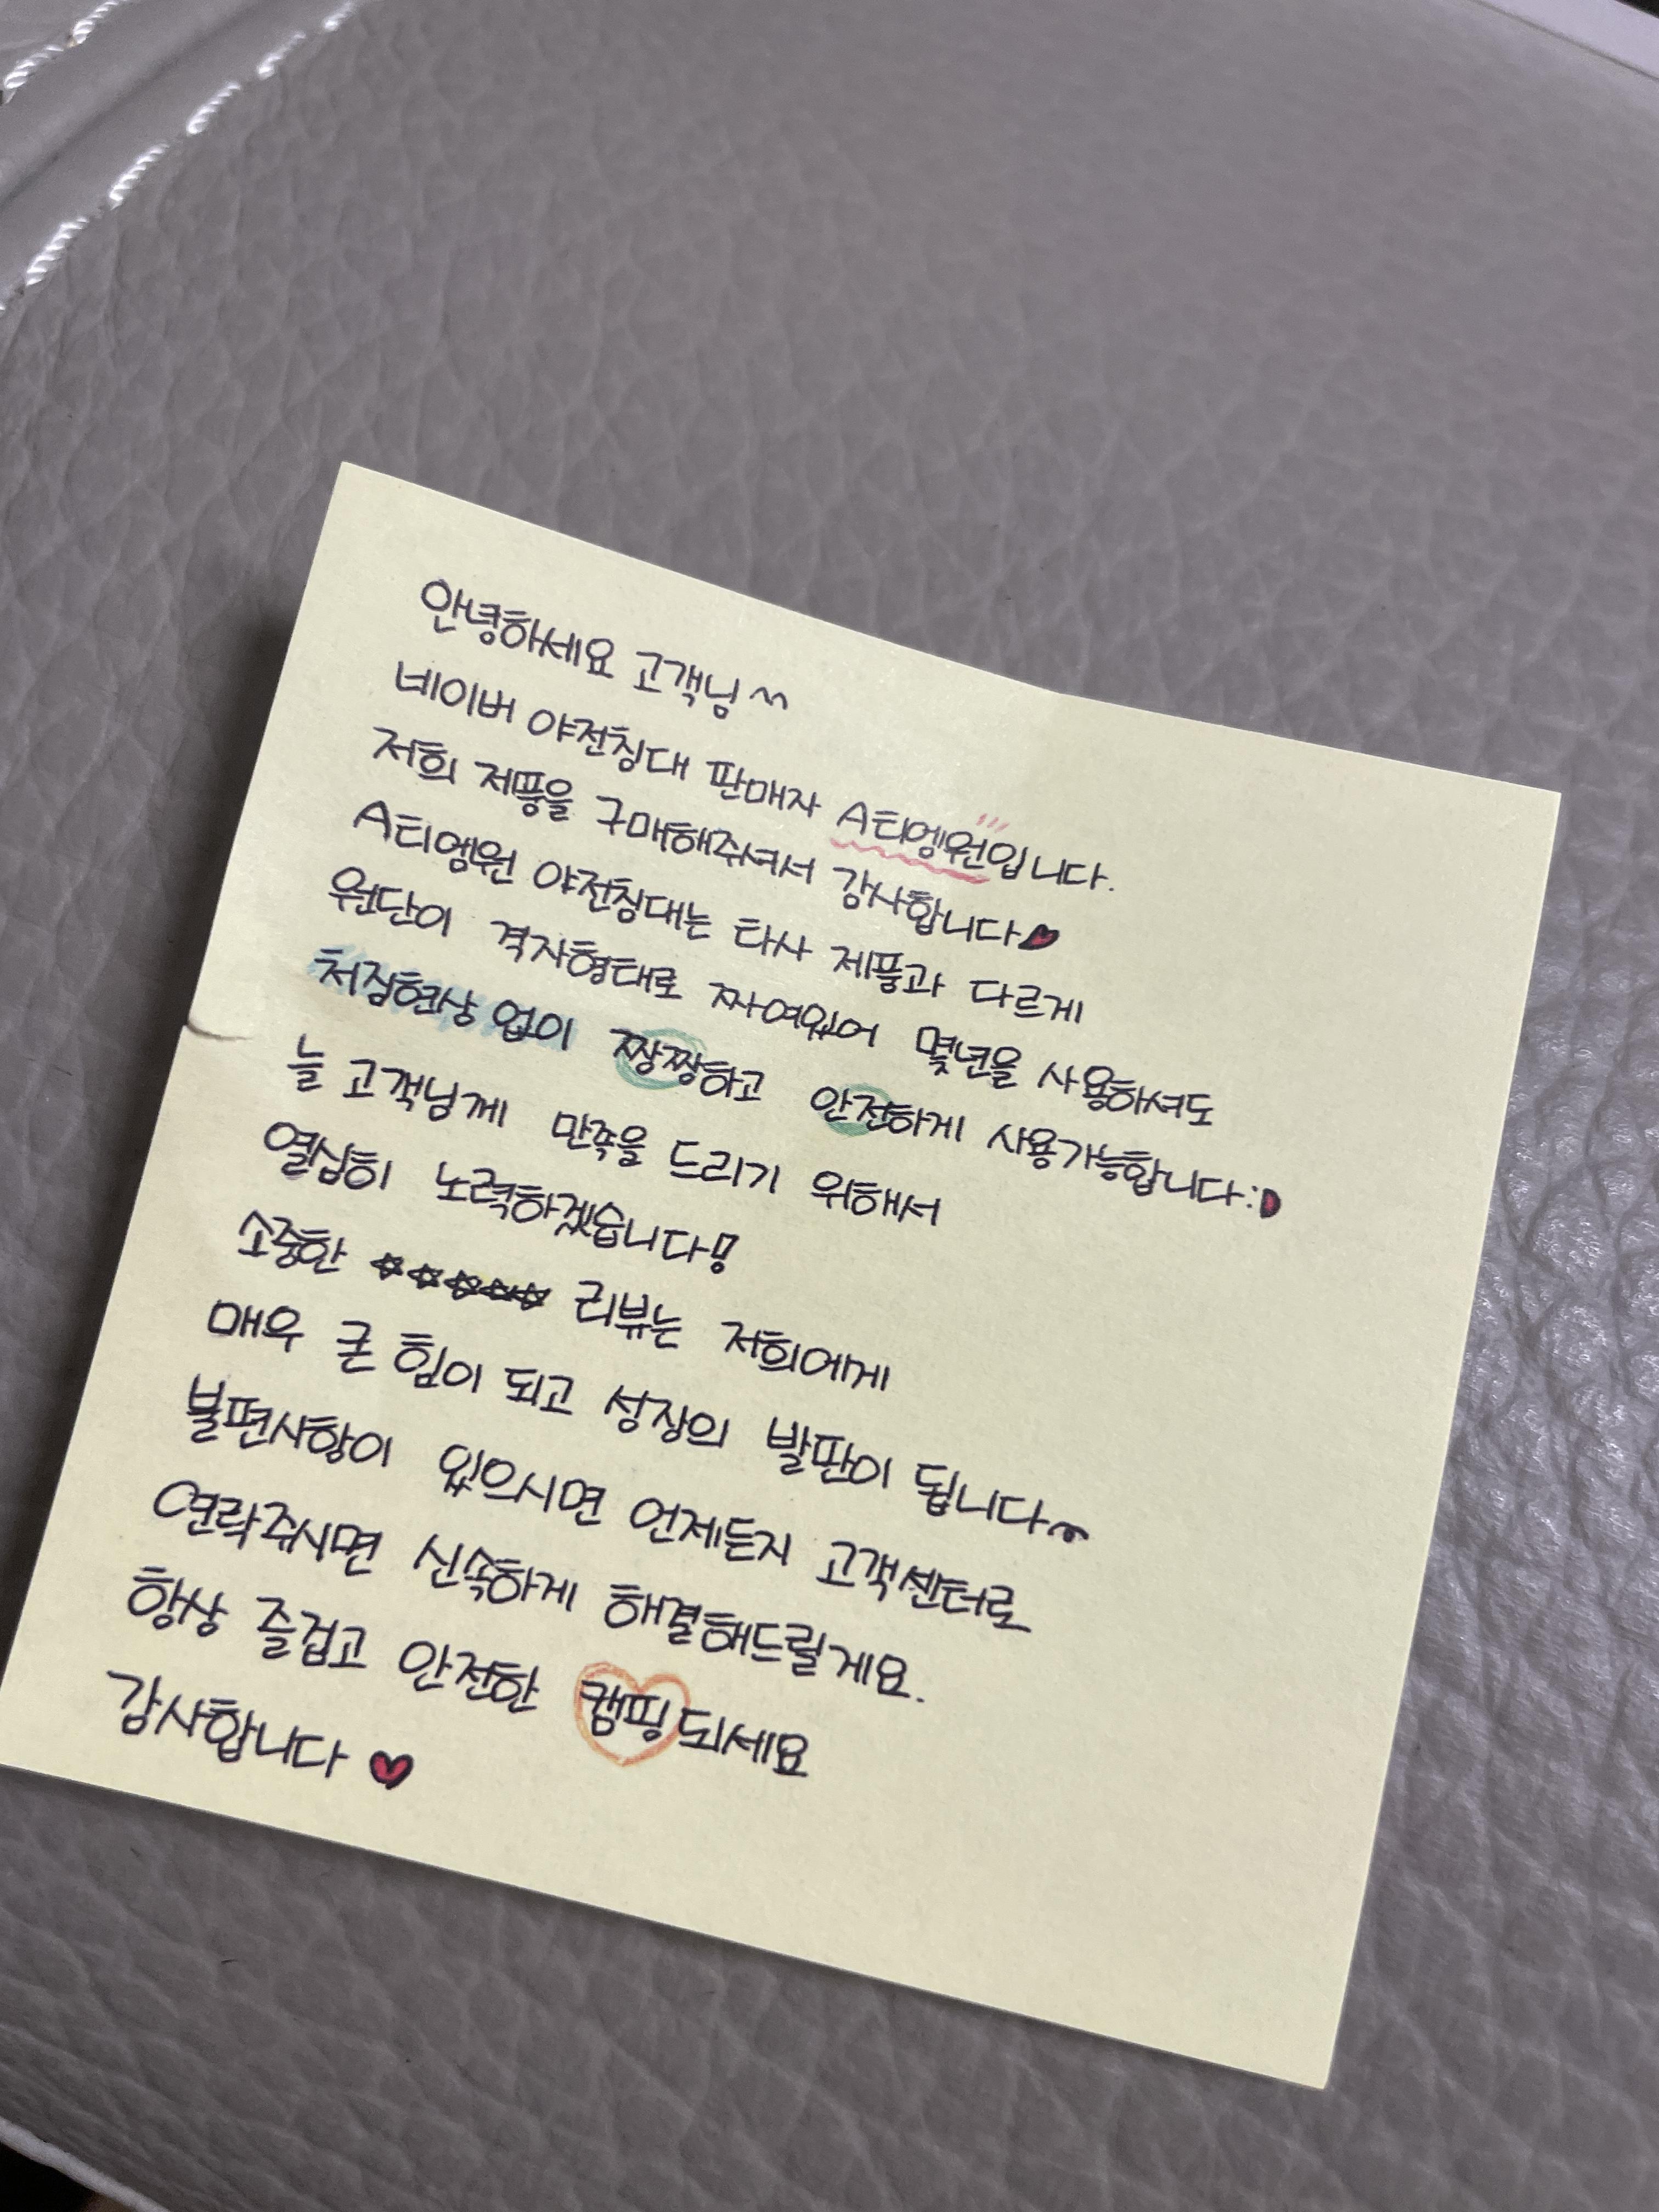 안녕하세요 고객님^^
네이버 야전침대 판매자 A티엠원입니다.
저희 제품을 구매해주셔서 감사합니다♥
A티엠원 야전침대는 타사 제품과 다르게
원단이 격자형태로 짜여있어 몇년을 사용하셔도
처짐현상 없이 짱짱하고 안전하게 사용가능합니다:D
늘 고객님께 만족을 드리기 위해서
열심히 노력하겠습니다!
소중한 ☆☆☆☆☆ 리뷰는 저희에게
매우 큰 힘이 되고 성장의 발판이 됩니다~
불편사항이 있으시면 언제든지 고객센터로
연락주시면 신속하게 해결해드릴게요.
항상 즐겁고 안전한 캠핑되세요
감사합니다♥